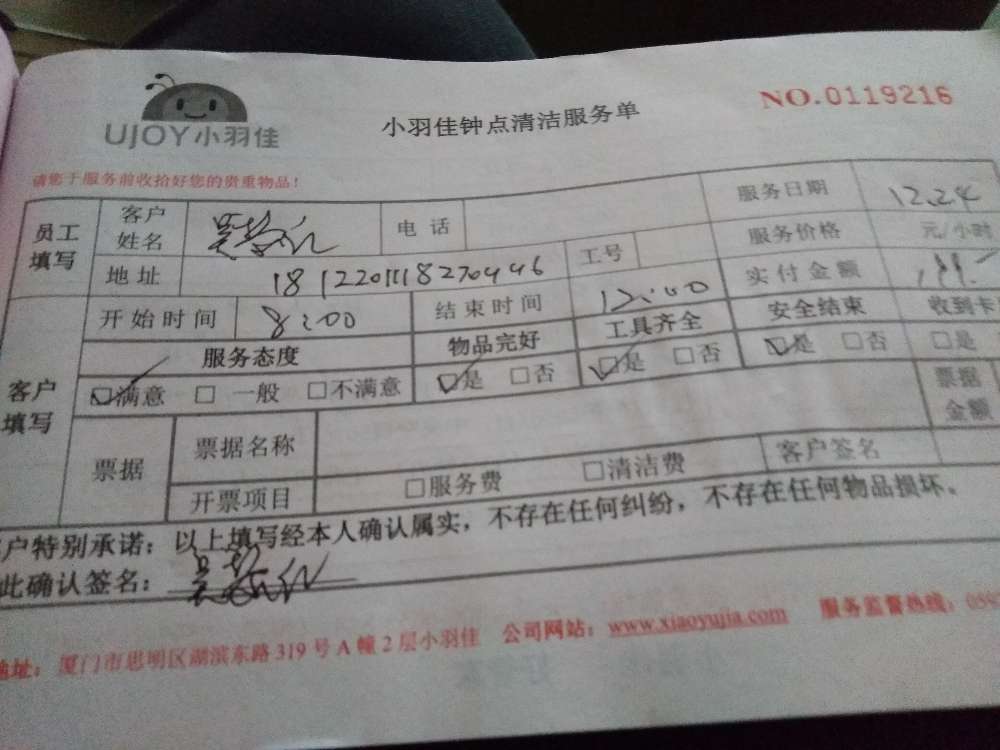 UJOY小羽佳
小羽佳钟点清洁服务单
NO.0119216
请您于服务前收拾好您的贵重物品!
员工填写 客户姓名 电话 服务日期 12.24
地址 181220111827044​6 工号 服务价格 元/小时
开始时间 8:00 结束时间 12:00 实付金额
客户填写 服务态度 物品完好 工具齐全 安全结束 收到卡
☑满意 □ 一般 □不满意 ☑是 □否 ☑是 □否 ☑是 □否 □是
票据 票据名称 票据金额
开票项目 □服务费 □清洁费 客户签名
户特别承诺:以上填写经本人确认属实,不存在任何纠纷,不存在任何物品损坏。
此确认签名:
地址:厦门市思明区湖滨东路319号A幢2层小羽佳 公司网站:www.xiaoyujia.com 服务监督热线:059